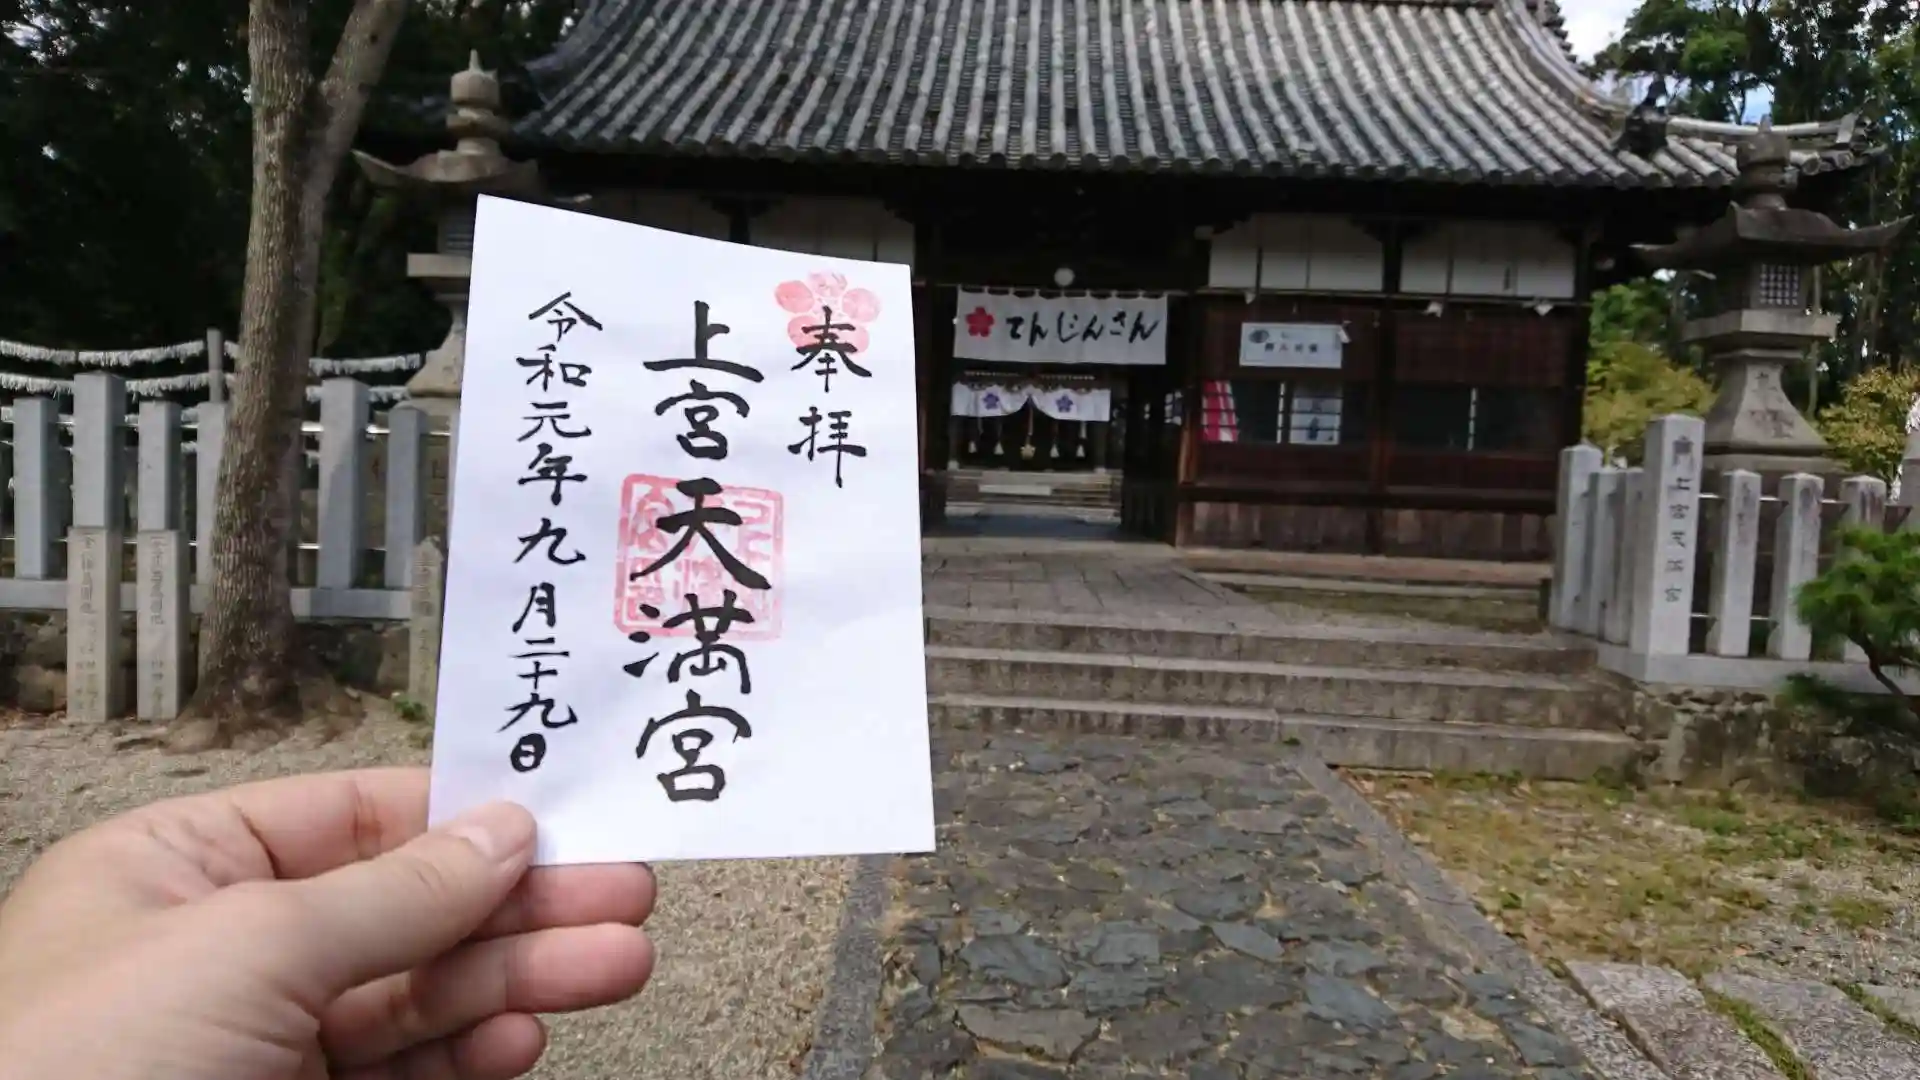 奉拝
上宮天満宮
令和元年九月二十九日
てんじんさん
上宮天満宮